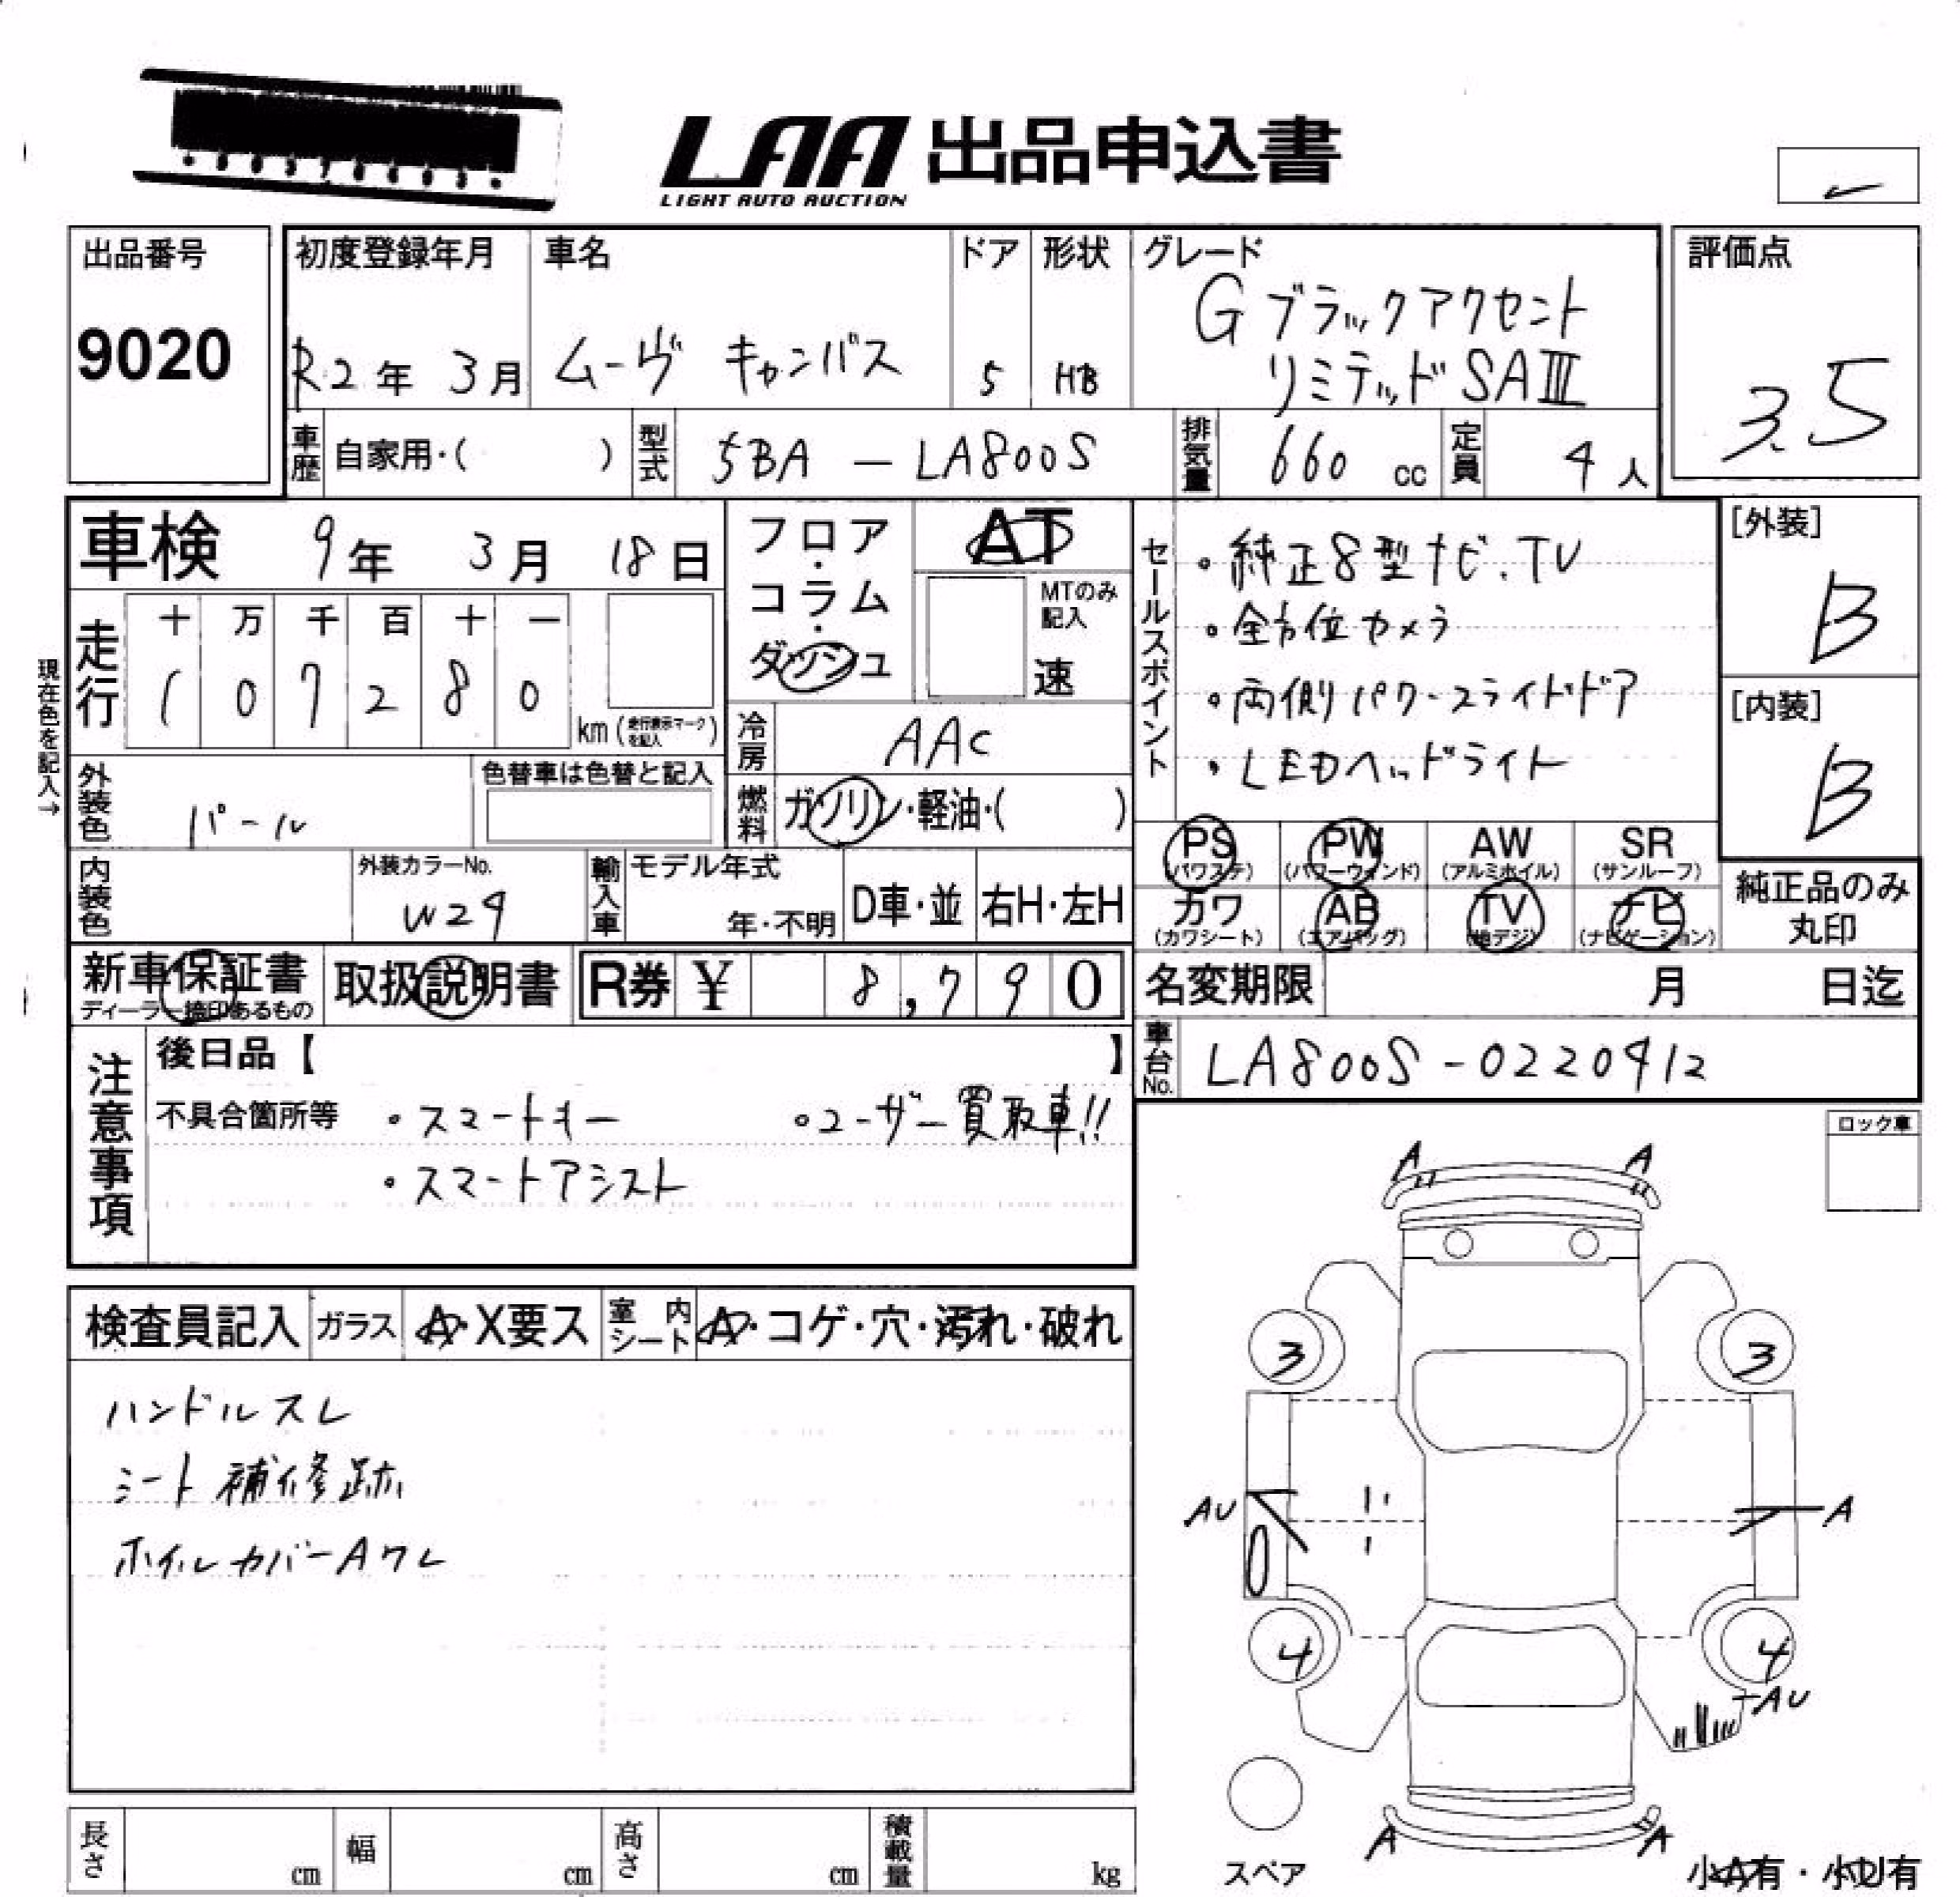 LAA 出品申込書
LIGHT AUTO AUCTION
出品番号
9020
初度登録年月
R2年 3月
車名
ムーヴ キャンバス
ドア
5
形状
HB
グレード
G ブラックアクセント
リミテッド SAⅢ
評価点
3.5
車歴 自家用・( )
型式 5BA - LA800S
排気量 660 cc
定員 4人
車検 9年 3月 18日
フロア・コラム・ダッシュ
AT
MTのみ記入
速
走行
十 万 千 百 十 一
1 0 7 2 8 0
km (走行表示マークを記入)
現在色を記入→
冷房 AAC
外装色 パール
色替車は色替と記入
燃料 ガソリン・軽油・( )
セールスポイント
・純正8型ナビ.TV
・全方位カメラ
・両側パワースライドドア
・LEDヘッドライト
[外装]
B
[内装]
B
PS (パワステ)
PW (パワーウィンド)
AW (アルミホイル)
SR (サンルーフ)
カワ (カワシート)
AB (エアバッグ)
TV (地デジ)
ナビ (ナビゲーション)
純正品のみ丸印
内装色
外装カラーNo.
W24
輸入車
モデル年式
年・不明
D車・並
右H・左H
新車保証書
ディーラー捺印あるもの
取扱説明書
R券 ¥ 8,790
名変期限 月 日迄
車台No. LA800S-0220412
注意事項
後日品【 】
不具合箇所等 ・スマートキー ・ユーザー買取車!!
・スマートアシスト
ロック車
検査員記入
ガラス A・X要ス
室内シート A・コゲ・穴・汚れ・破れ
ハンドルスレ
シート補修跡
ホイルカバーAワレ
A A
3 3
AU A
4 4
AU
A A
スペア
小A有・小U有
長さ cm
幅 cm
高さ cm
積載量 kg